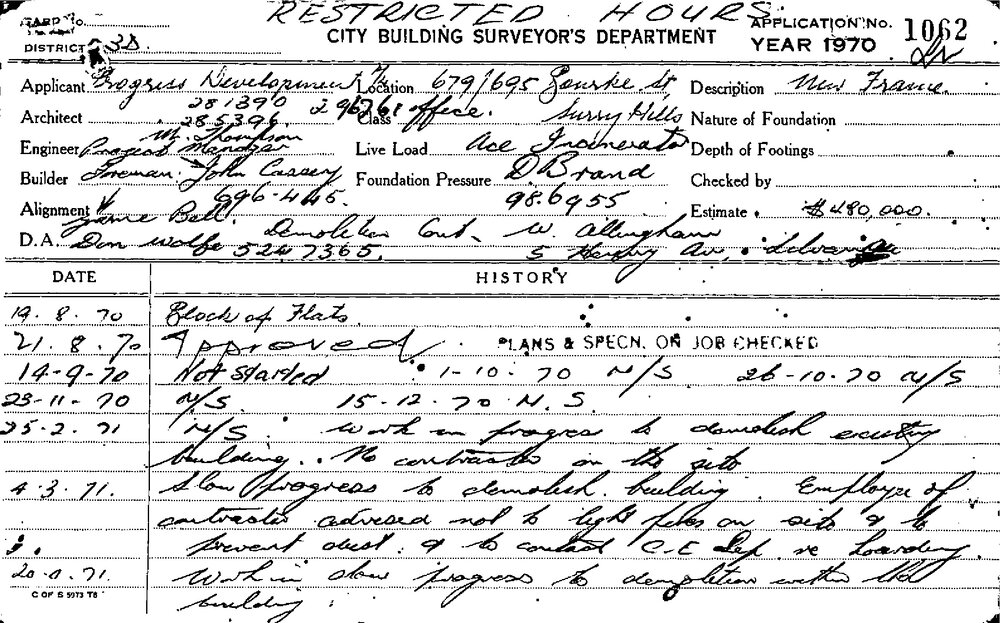 RESTRICTED HOURS
CARD No.
CITY BUILDING SURVEYOR'S DEPARTMENT
APPLICATION No. 1062
DISTRICT 3D.
YEAR 1970
Applicant Progress Development Location 679/695 Bourke St Description New Frame.
281390 296761
Architect 285396. Class office. Surry Hills Nature of Foundation
M. Thompson
Engineer Project Manager Live Load Ace Incinerator Depth of Footings
Builder Foreman: John Cassey Foundation Pressure D Brand Checked by
Alignment 696-445. 986955 Estimate $480,000.
Bell. Demolition Cont- W. Allingham
D.A. Don Wolfe 5247365. 5 Henry Av,
DATE HISTORY
19.8.70 Block of Flats.
21.8.70 Approved PLANS & SPECN. ON JOB CHECKED
14-9-70 Not Started 1-10-70 N/S 26-10-70 N/S
23-11-70 N/S. 15-12-70 N.S.
25.2.71 N/S. Work in progress to demolish existing
building. No contractor on the site
4.3.71. Slow progress to demolish building. Employee of
contractor advised not to light fires on site & to
prevent dust. & to contact C.E Dep. re hoarding.
Work in slow progress to demolition within the
building.
C OF S 5973 T8